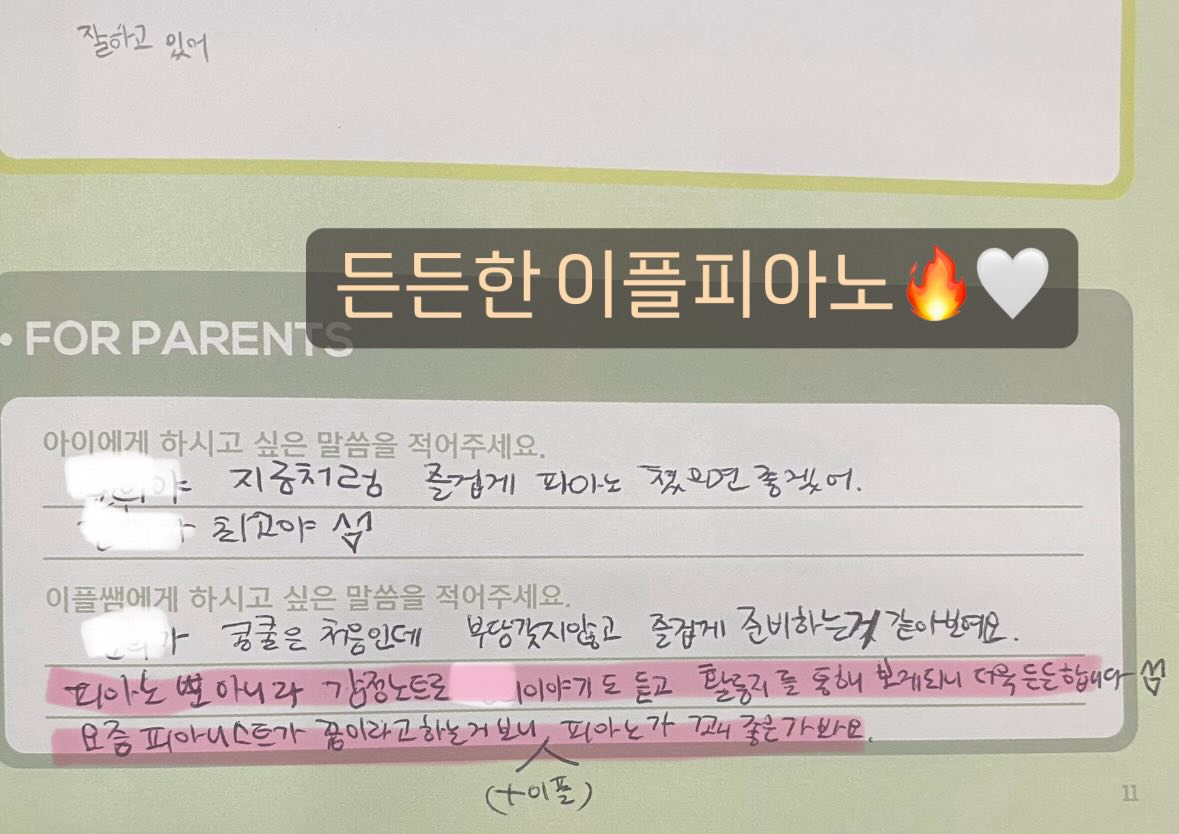 잘하고 있어
든든한 이플피아노🔥🤍
• FOR PARENTS
아이에게 하시고 싶은 말씀을 적어주세요.
지금처럼 즐겁게 피아노 쳤으면 좋겠어.
최고야
이플쌤에게 하시고 싶은 말씀을 적어주세요.
콩쿨은 처음인데 부담갖지않고 즐겁게 준비하는것 같아보여요.
피아노 뿐 아니라 감정노트로 이야기도 듣고 활동지를 통해 보게되니 더욱 든든합니다
요즘 피아니스트가 꿈이라고하는거 보니 피아노가 꽤 좋은가봐요.
(+이플)
11